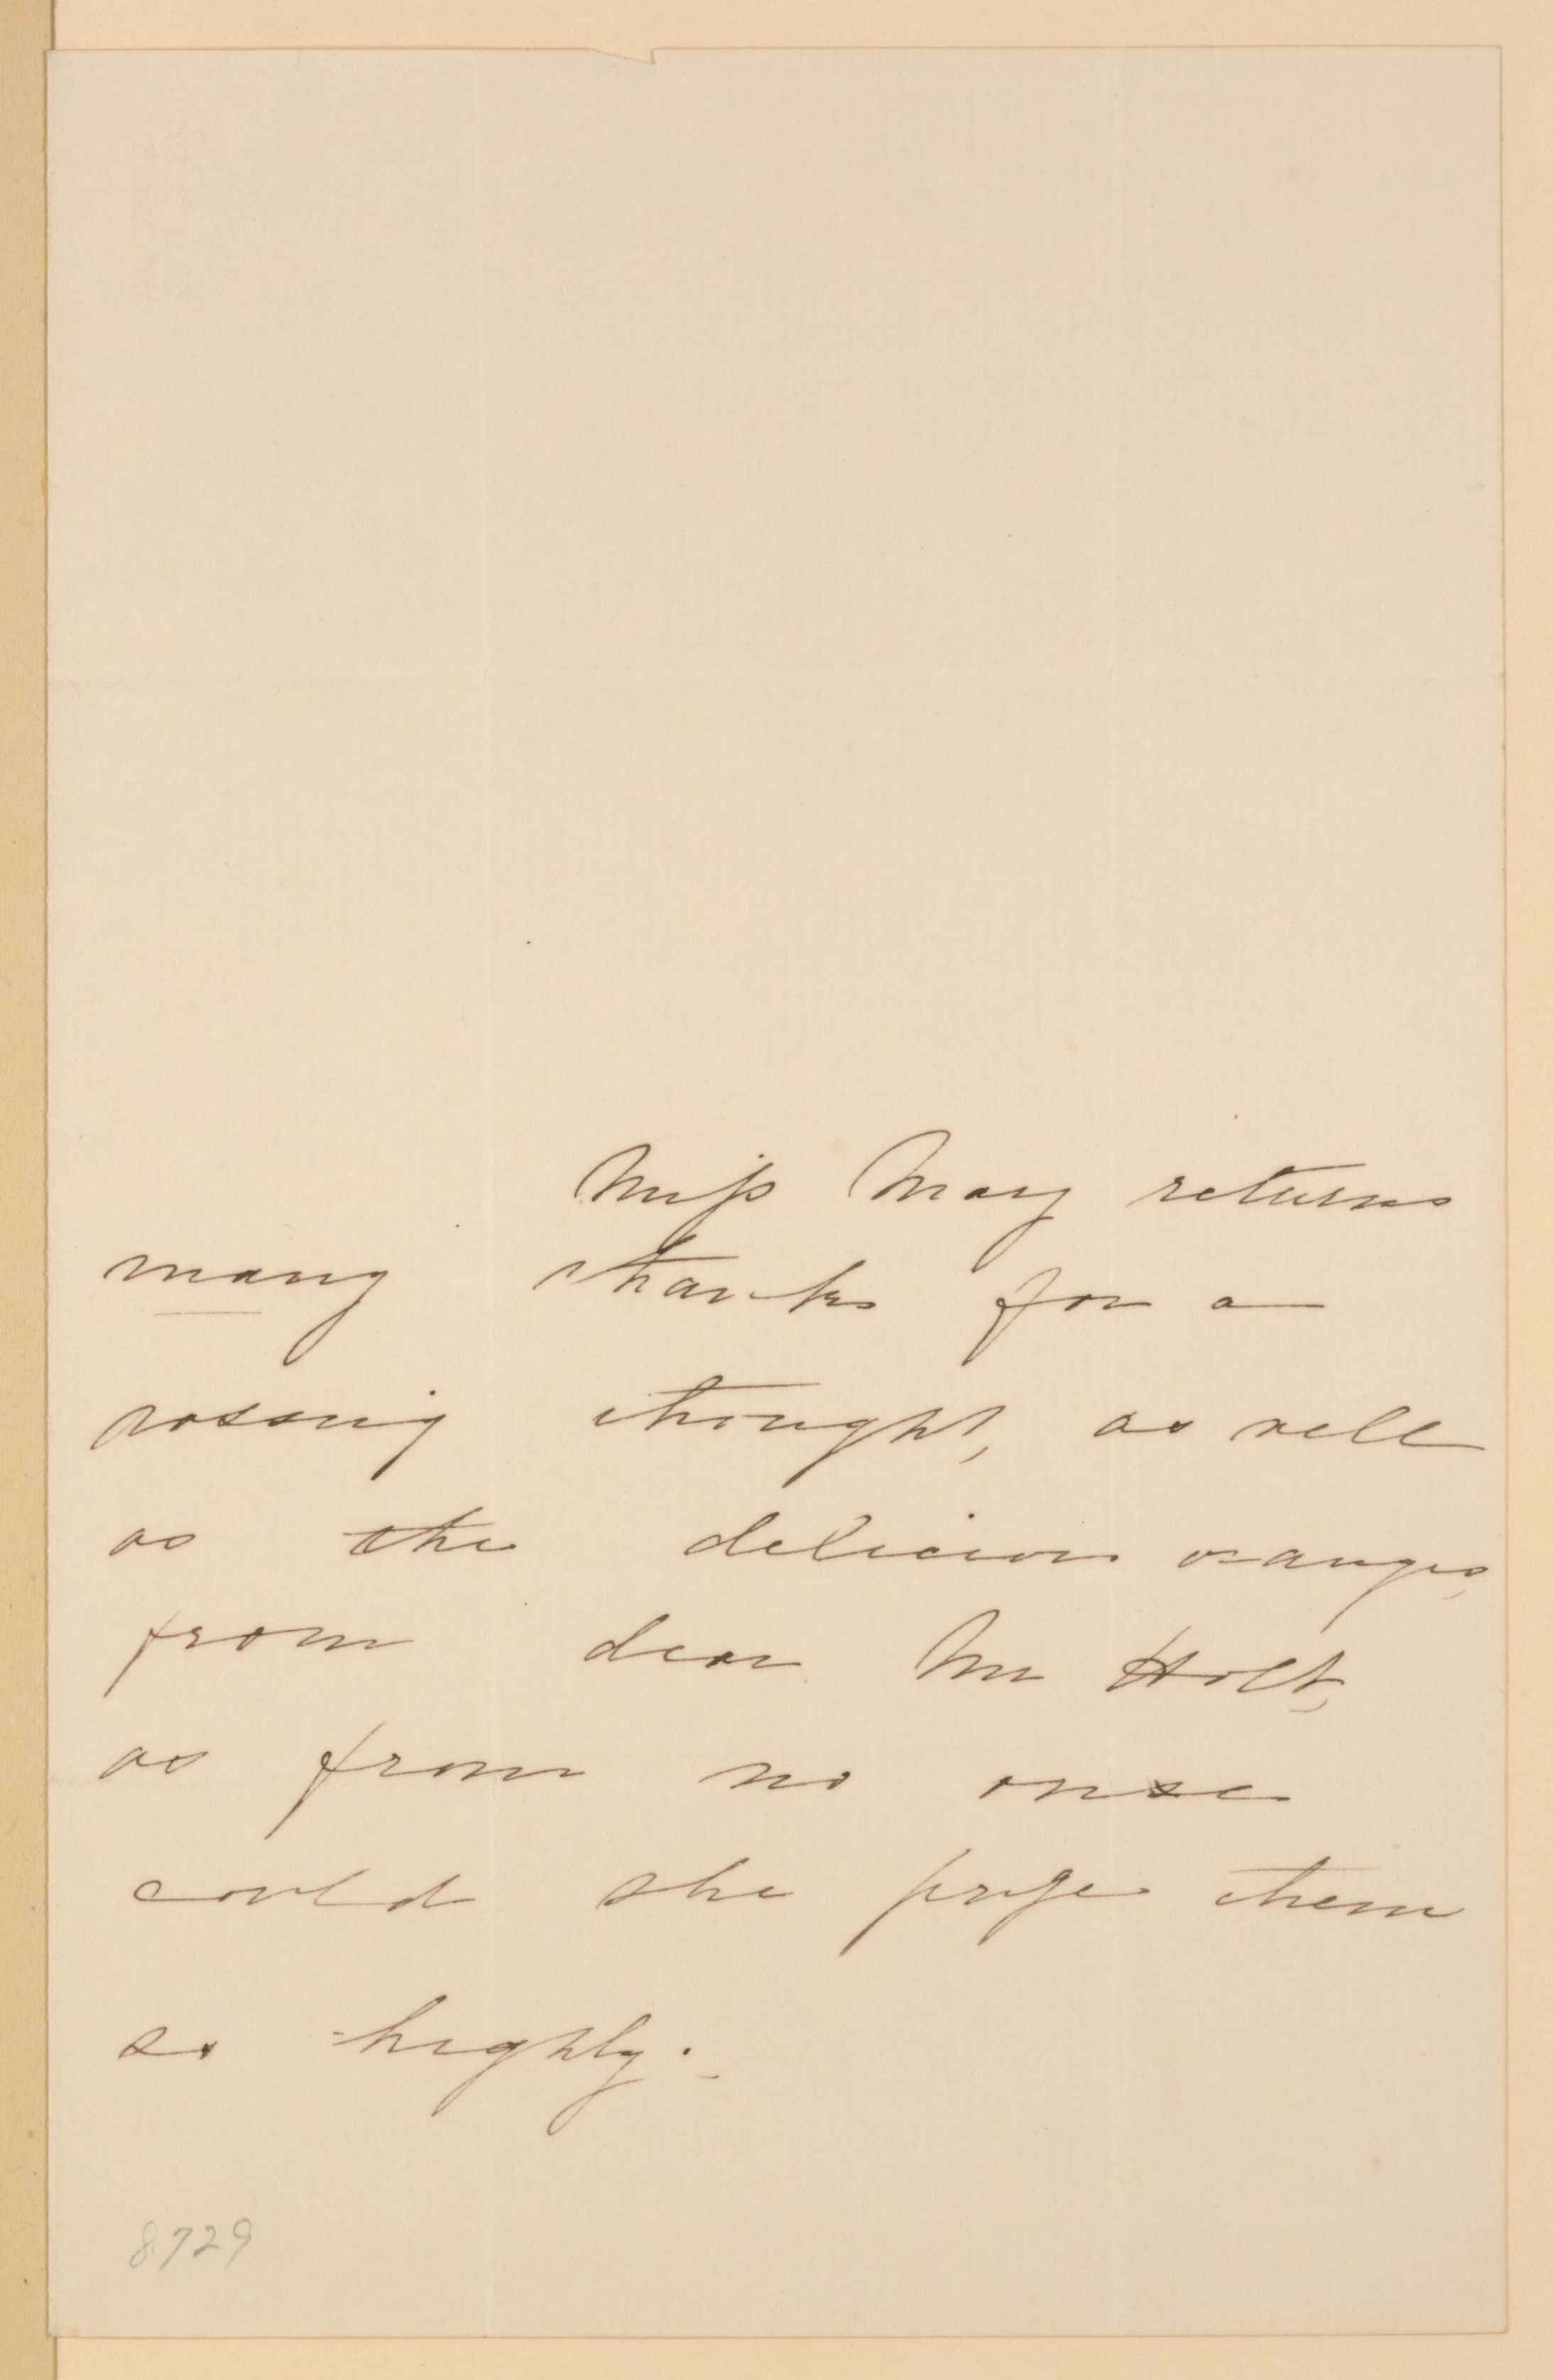 Miss May returns
many thanks for a
passing thought, as well
as the delicious oranges,
from dear Mr Holt,
as from no one
could she prize them
so highly.
8729